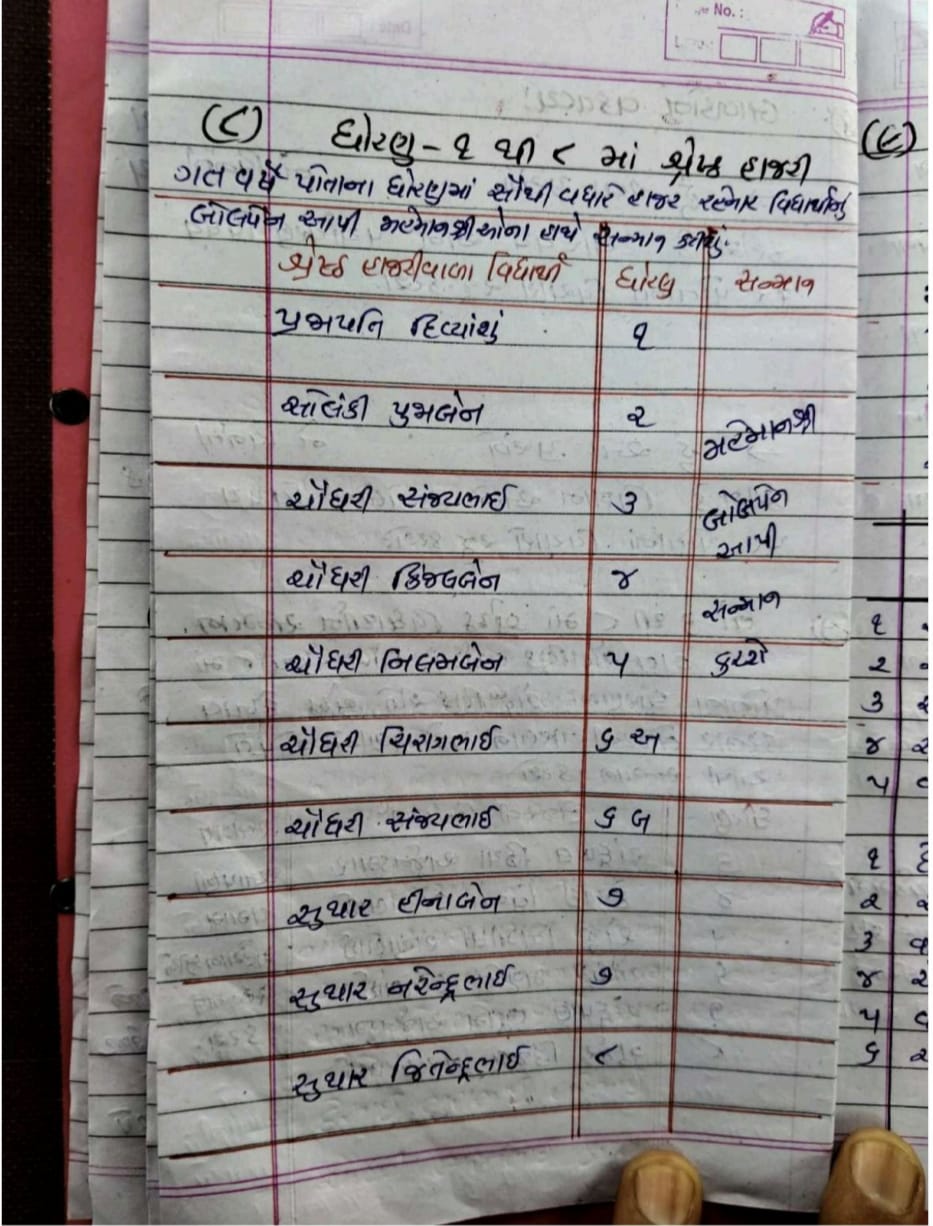 No. :
(૮) ધોરણ - ૧ થી ૮ માં શ્રેષ્ઠ હાજરી
ગત વર્ષે પોતાના ધોરણમાં સૌથી વધારે હાજર રહેનાર વિદ્યાર્થીનું
બોલપેન આપી મહેમાનશ્રીઓના હાથે સન્માન કરીશું.
શ્રેષ્ઠ હાજરીવાળા વિદ્યાર્થી ધોરણ સન્માન
પ્રજાપતિ દિવ્યાંશું ૧
સોલંકી પુજાબેન ૨ મહેમાનશ્રી
ચૌધરી સંજયભાઈ ૩ બોલપેન
આપી
ચૌધરી કિંજલબેન ૪ સન્માન
ચૌધરી નિલમબેન ૫ કરશે
ચૌધરી ચિરાગભાઈ ૬ અ
ચૌધરી સંજયભાઈ ૬ બ
સુથાર હીનાબેન ૭
સુથાર નરેન્દ્રભાઈ ૭
સુથાર જિતેન્દ્રભાઈ ૮
(૯)
૧
૨
૩
૪
૫
૧
૨
૩
૪
૫
૬